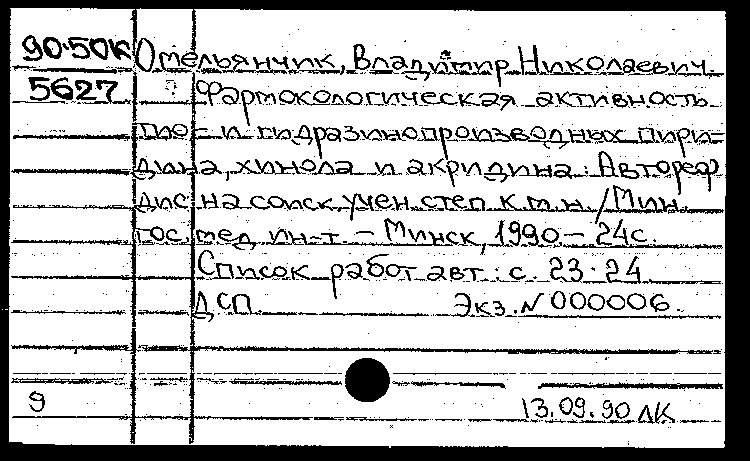 90·50К Омельянчик, Владимир Николаевич.
5627 Фармокологическая активность
тио- и гидразинопроизводных пири-
дина, хинола и акридина: Автореф
дис на соиск. учен. степ к.м.н. / Мин.
гос. мед. ин-т. – Минск, 1990 – 24с.
Список работ авт.: с. 23-24
ДСП. Экз. N 000006.
9 13.09.90 ЛК